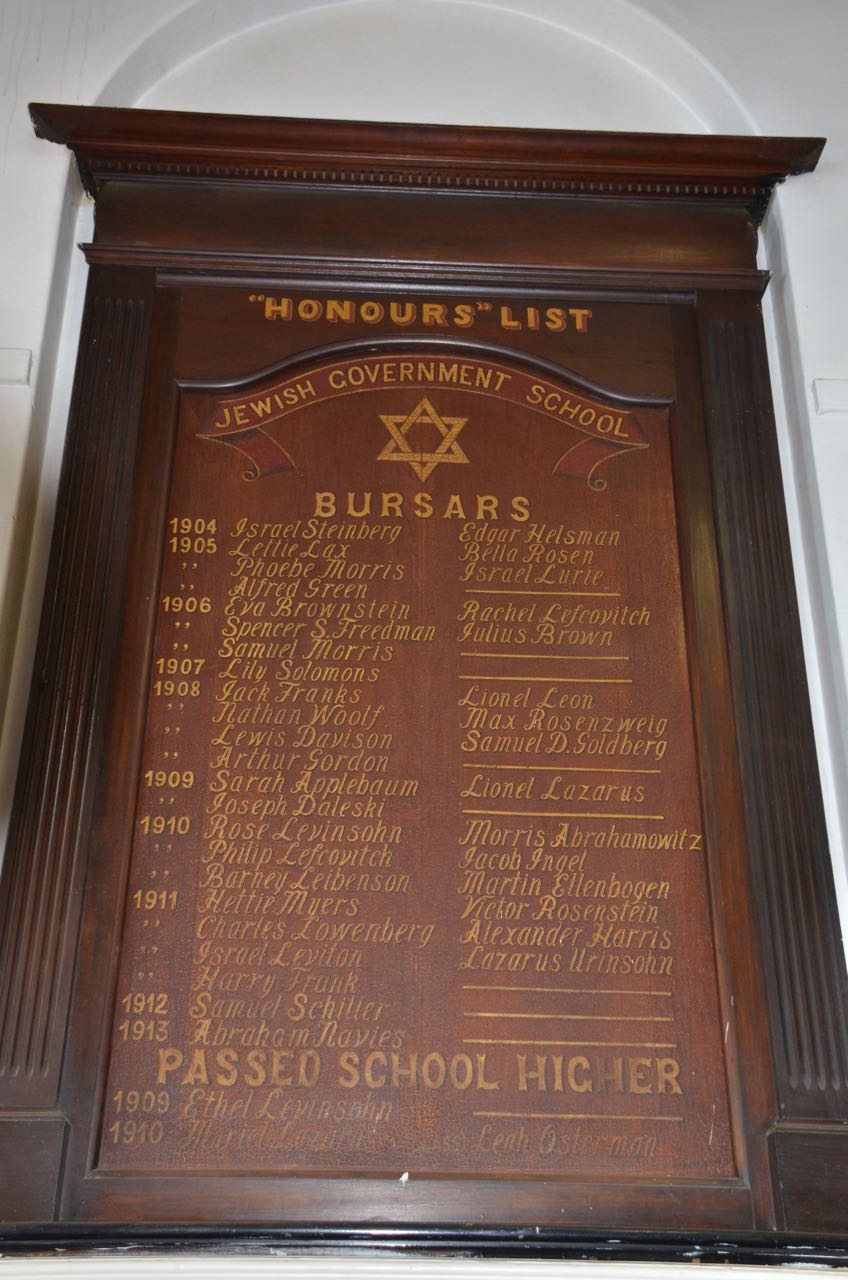 "HONOURS" LIST
JEWISH GOVERNMENT SCHOOL
BURSARS
1904 Israel Steinberg Edgar Helsman
1905 Lettie Lax Bella Rosen
" Phoebe Morris Israel Lurie
" Alfred Green
1906 Eva Brownstein Rachel Lefcovitch
" Spencer S. Freedman Julius Brown
" Samuel Morris
1907 Lily Solomons
1908 Jack Franks Lionel Leon
" Nathan Woolf Max Rosenzweig
" Lewis Davison Samuel D. Goldberg
" Arthur Gordon
1909 Sarah Applebaum Lionel Lazarus
" Joseph Daleski
1910 Rose Levinsohn Morris Abrahamowitz
" Philip Lefcovitch Jacob Ingel
" Barney Leibenson Martin Ellenbogen
1911 Hettie Myers Victor Rosenstein
" Charles Lowenberg Alexander Harris
" Israel Leviton Lazarus Urinsohn
" Harry Frank
1912 Samuel Schiller
1913 Abraham Navies
PASSED SCHOOL HIGHER
1909 Ethel Levinsohn
1910 Leah Osterman